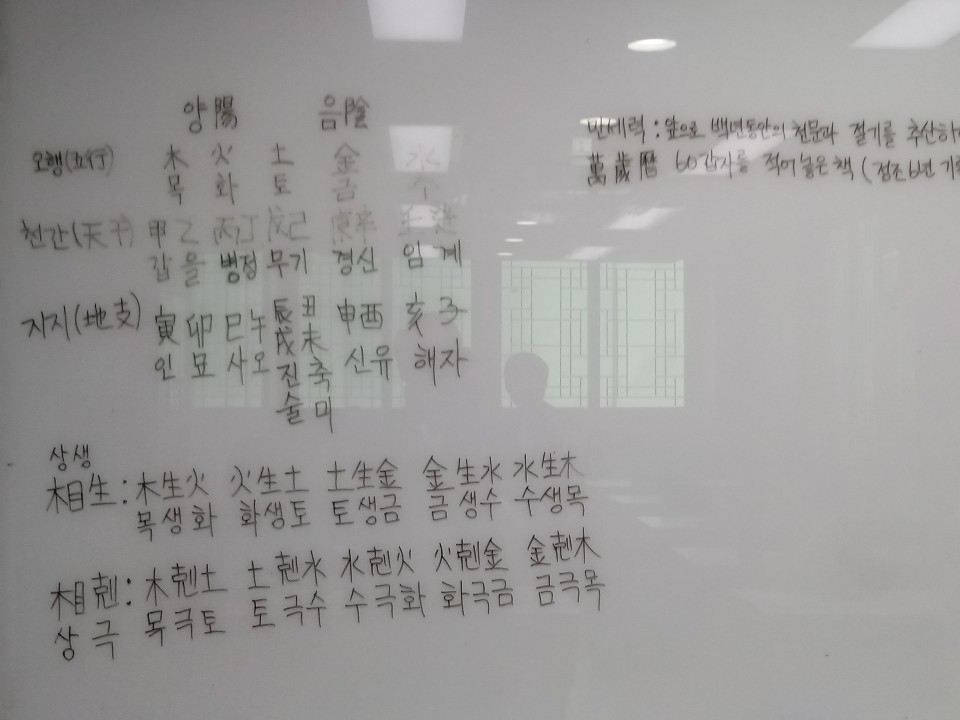 양陽 음陰
오행(五行) 木 火 土 金 水
목 화 토 금 수
천간(天干) 甲乙 丙丁 戊己 庚辛 壬癸
갑을 병정 무기 경신 임계
지지(地支) 寅卯 巳午 辰丑 申酉 亥子
戌未
인묘 사오 진축 신유 해자
술미
상생
相生: 木生火 火生土 土生金 金生水 水生木
목생화 화생토 토생금 금생수 수생목
相剋: 木剋土 土剋水 水剋火 火剋金 金剋木
상극 목극토 토극수 수극화 화극금 금극목
만세력 : 앞으로 백년동안의 천문과 절기를 추산하
萬歲曆 60갑자를 적어 놓은 책 (정조6년